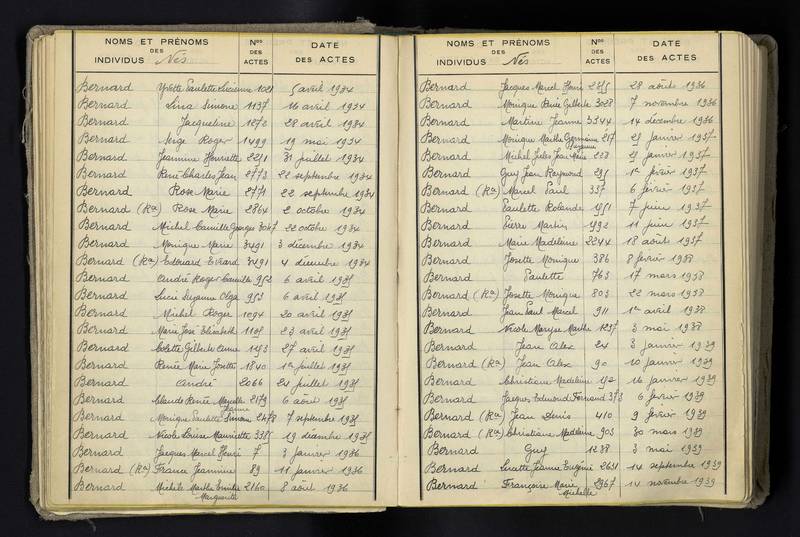 NOMS ET PRÉNOMS DES INDIVIDUS Nés Nos DES ACTES DATE DES ACTES
Bernard Yvette Paulette Lucienne 1021 5 avril 1934
Bernard Lina Simone 1137 16 avril 1934
Bernard Jacqueline 1272 28 avril 1934
Bernard Serge Roger 1499 19 mai 1934
Bernard Jeannine Henriette 2251 31 juillet 1934
Bernard René Charles Jean 2773 22 septembre 1934
Bernard Rose Marie 2771 22 septembre 1934
Bernard (Ra) Rose Marie 2864 2 octobre 1934
Bernard Michel Camille Georges 3047 22 octobre 1934
Bernard Monique Marie 3491 3 décembre 1934
Bernard (Ra) Edouard Evrard 3491 4 décembre 1934
Bernard André Roger Camille 952 6 avril 1935
Bernard Lucie Suzanne Olga 953 6 avril 1935
Bernard Michel Roger 1094 20 avril 1935
Bernard Marie José Elisabeth 1108 23 avril 1935
Bernard Colette Gilberte Anne 1153 27 avril 1935
Bernard Renée Marie Josette 1840 1er juillet 1935
Bernard André 2066 24 juillet 1935
Bernard Claude Renée 2179 6 août 1935
Bernard Monique Paulette Simone Jeanne 2478 7 septembre 1935
Bernard Nicole Louise Mauricette 3385 19 décembre 1935
Bernard Jacques Marcel Henri 7 3 janvier 1936
Bernard (Ra) France Jeannine 89 11 janvier 1936
Bernard Michèle Marthe Emilie Marguerite 2160 8 août 1936
NOMS ET PRÉNOMS DES INDIVIDUS Nés Nos DES ACTES DATE DES ACTES
Bernard Jacques Marcel Henri 2355 28 août 1936
Bernard Monique Renée Gilberte 3028 7 novembre 1936
Bernard Martine Jeanne 3344 14 décembre 1936
Bernard Monique Marthe Germaine Suzanne 217 23 janvier 1937
Bernard Michel Jules Jean Marie 228 25 janvier 1937
Bernard Guy Jean Raymond 295 1er février 1937
Bernard (Ra) Marcel Paul 337 6 février 1937
Bernard Paulette Rolande 1451 7 juin 1937
Bernard Pierre Martin 1492 11 juin 1937
Bernard Marie Madeleine 2244 18 août 1937
Bernard Josette Monique 386 8 février 1938
Bernard Paulette 763 17 mars 1938
Bernard (Ra) Josette Monique 803 22 mars 1938
Bernard Jean Paul Marcel 911 1er avril 1938
Bernard Nicole Maryse Marthe 1237 3 mai 1938
Bernard Jean Alex 24 3 janvier 1939
Bernard (Ra) Jean Alex 90 10 janvier 1939
Bernard Christiane Madeleine 152 16 janvier 1939
Bernard Jacques Edmond Fernand 373 6 février 1939
Bernard (Ra) Jean Denis 410 9 février 1939
Bernard (Ra) Christiane Madeleine 903 30 mars 1939
Bernard Guy 1238 3 mai 1939
Bernard Lucette Jeanne Eugénie 2631 14 septembre 1939
Bernard Françoise Marie Michelle 2967 14 novembre 1939